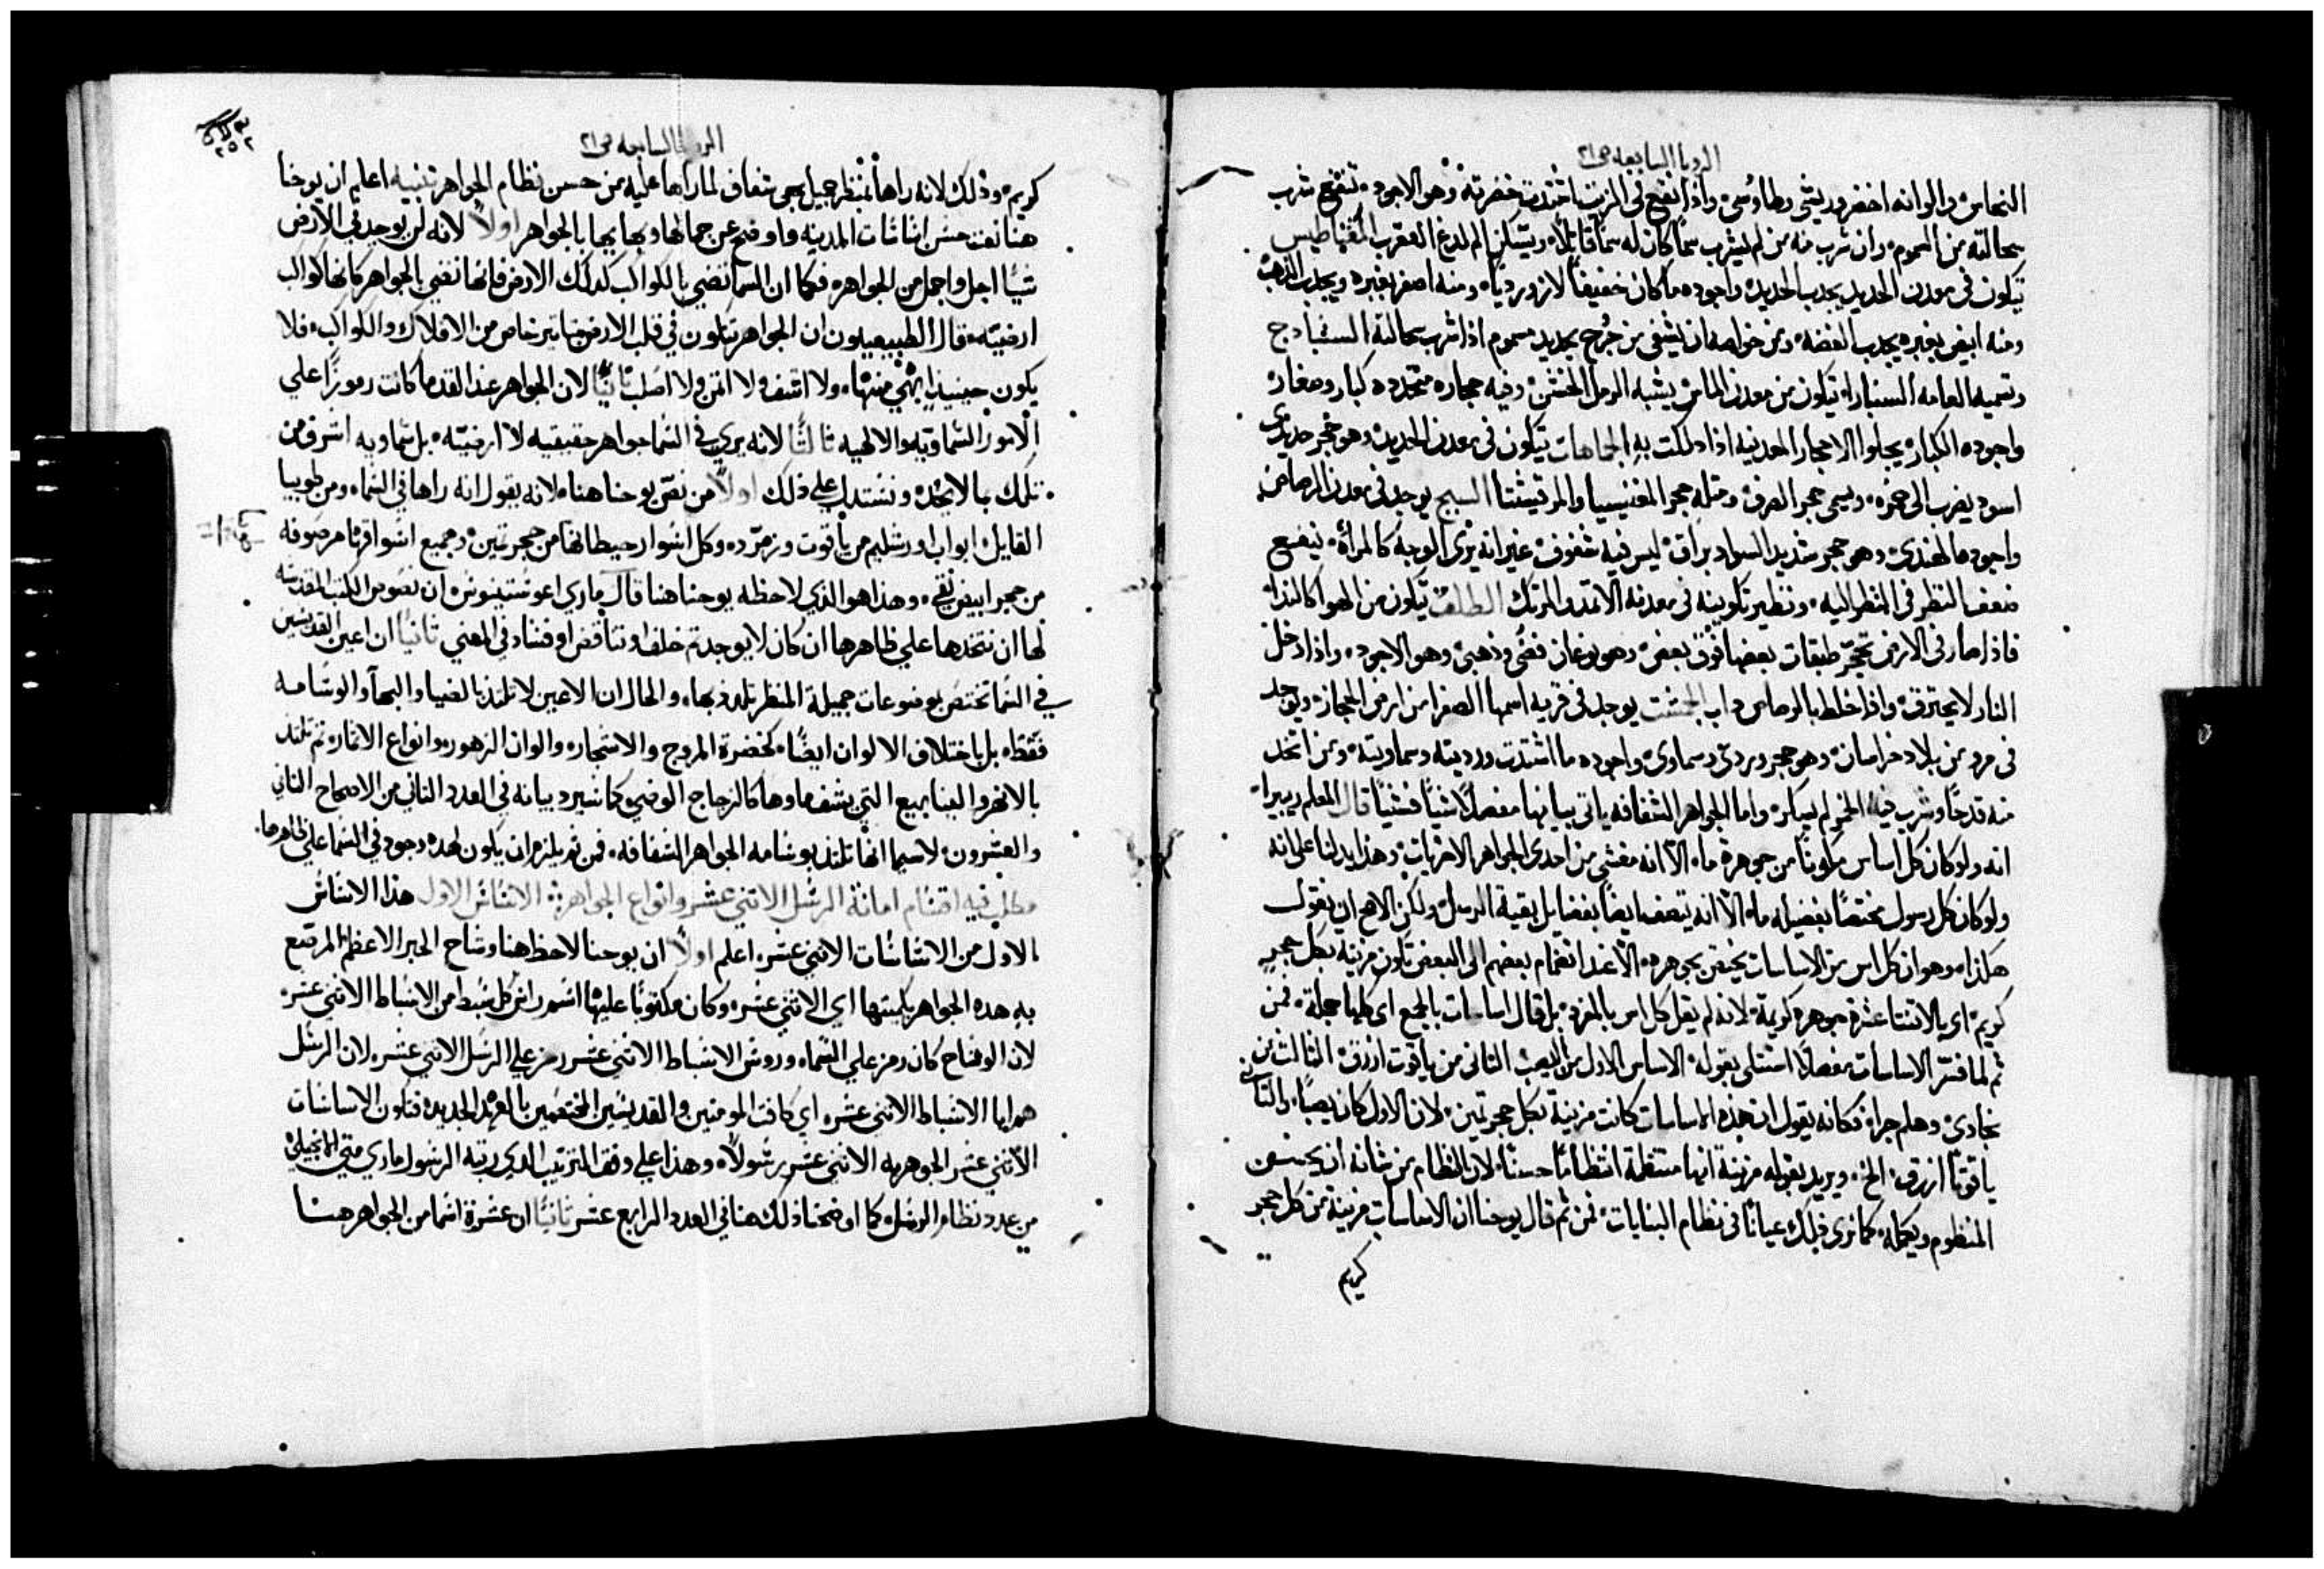 الرويا السابعه ص٢١
النحاس والوانه اخضر وريشي وطاوسي واذا نقع في الزيت اشتدت خضرته وهو الاجود ينفع شرب
سحالته من السموم وان شرب منه من لم يشرب سما كان له سما قاتلاً ويسكن الم لدغ العقرب المغناطيس
يتكون في معدن الحديد يجذب الحديد واجوده ما كان خفيفاً لازوردياً ومنه اصفر بغبره ويجذب الذهب
ومنه ابيض بغبره يجذب الفضه ومن خواصه ان يشفي من جرح بحديد مسموم اذا شرب سحالته السنبادج
وتسميه العامه السنباراه يتكون من معدن الماس يشبه الرمل الخشن وفيه حجاره متجدده كبار وصغار
واجوده الكبار يجلوا الاحجار المعدنيه اذا دلكت به الجماهات يتكون في معدن الحديد وهو حجر حديدي
اسود يضرب الى حمره ويسمى حجر الصرف ومثله حجر المغنيسيا والمرقيشتا السبج يوجد في معدن الرصاص
واجوده الهندي وهو حجر شديد السواد براق ليس فيه شفوف غير انه يرى الوجه كالمرآه ينفع
ضعف النظر في النظر اليه ونظير تكوينه في معدنه الاثمد والمرتك الطلق يتكون من الهوا كالندا
فاذا صار في الارض تحجر طبقات بعضها فوق بعض وهو نوعان فضي وذهبي وهو الاجود واذا دخل
النار لا يحترق واذا خلط بالرصاص داب الجمشت يوجد في قريه اسمها الصفرا من ارض الحجاز ويوجد
في مرو من بلاد خراسان وهو حجر وردي وسماوي واجوده ما اشتدت ورديته وسماويته ومن اتخذ
منه قدحاً وشرب فيه الخمر لم يسكر واما الجواهر الشفافه ياتي بيانها مفصلاً شياً فشياً قال المعلم ريبيرا
انه ولو كان كل اساس مكوناً من جوهرة ما الا انه مغشي من احدى الجواهر الاخريات وهذا يدلنا على انه
ولو كان كل رسول مختصاً بفضيله ما الا انه يتصف ايضاً بفضايل بقية الرسل ولكن الاهم ان نقول
هكذا وهو ان كل اس من الاساسات يختص بجوهره الا عند انضمام بعضهم الى البعض تكون مزينه بكل حجر
كريم اي بالاثنتا عشرة جوهرة كريمة لانه لم يقل كل اس بالمفرد بل قال اساسات بالجمع اي كلها جملة فمن
ثم لما فسر الاساسات مفصلاً استتلى بقوله الاساس الاول من اليصب الثاني من ياقوت ازرق الثالث من
نجادي وهلم جرا فكانه يقول ان هذه الاساسات كانت مزينة بكل حجر ثمين لان الاول كان يصباً والثاني
ياقوتاً ازرق الخ ويريد بقوله مزينة انها منتظمة انتظاماً حسناً لان النظام من شانه ان يحسن
المنظوم ويكمله كما نرى ذلك عياناً في نظام البنايات فمن ثم قال يوحنا ان الاساسات مزينة من كل حجر
كريم
الرويا السابعه ص٢١
٢٥٢
كريم وذلك لانه راها بمنظر جميل بهي شفاف لما راها عليه من حسن نظام الجواهر تنبيه اعلم ان يوحنا
هنا نعت حسن اساسات المدينه واوضح عن جمالها وبهايها بالجواهر اولاً لانه لن يوجد في الارض
شيا اجل واجمل من الجواهر فكما ان السما تضي بالكواكب كدلك الارض فانها تضي بالجواهر كانها كواكب
ارضيه قال الطبيعيون ان الجواهر تتكون في قلب الارض بتاتير خاص من الافلاك والكواكب فلا
يكون حينيذ ابهي منها ولا اشف ولا اتمن ولا اصلب ثانياً لان الجواهر عند القدما كانت رموزاً علي
الامور السماويه والالهيه ثالثاً لانه يري في السما جواهر حقيقيه لا ارضيه بل سماويه اشرف من
تلك بالابحده ونستدل علي ذلك اولاً من نص يوحنا هنا لانه يقول انه راها في السما ومن طوبيا
القايل ابواب اورشليم من ياقوت وزمرد وكل اسوار حيطانها من حجر تمين وجميع اسواقها مرصوفه
من حجر ابيض نقي وهذا هو الذي لاحظه يوحنا هنا قال ماري اغوستينوس ان نصوص الكتب المقدسه
لها ان نتخدها علي ظاهرها ان كان لا يوجد ثم خلف او تناقض او فساد في المعني ثانياً ان اعين القديسين
في السما تختص بموضوعات جميلة المنظر تلتذ بها والحال ان الاعين لا تلتذ بالضيا والبها والوسامه
فقط بل باختلاف الالوان ايضاً كخضرة المروج والاشجار والوان الزهور وانواع الاثمار ثم تلتذ
بالانهر والينابيع التي يشف ماوها كالزجاج الوضي كما سيرد بيانه في العدد الثاني من الاصحاح الثاني
والعشرون لاسيما انها تلتذ بوسامه الجواهر الشفافه فمن ثم يلزم ان يكون لهده وجود في السما علي ظاهرها
مطلب فيه اقتسام امانة الرسل الاثني عشر وانواع الجواهر الاساس الاول هذا الاساس
الاول من الاساسات الاثني عشر اعلم اولاً ان يوحنا لاحظ هنا وشاح الحبر الاعظم المرصع
به هده الجواهر بكميتها اي الاثني عشر وكان مكتوباً عليها اسم راس كل سبط من الاسباط الاثني عشر
لان الوشاح كان رمز علي السما وروس الاسباط الاثني عشر رمز علي الرسل الاثني عشر لان الرسل
هم ابا الاسباط الاثني عشر اي كافت المومنين والقديسين المختصين بالعهد الجديد فتكون الاساسات
الاثني عشر الجوهريه الاثني عشر رسولاً وهذا علي وفق الترتيب الدي رتبه الرسول ماري متي الانجيلي
من عدد نظام الرسل كما اوضحنا ذلك هنا في العدد الرابع عشر ثانياً ان عشرة اسما من الجواهر هنا